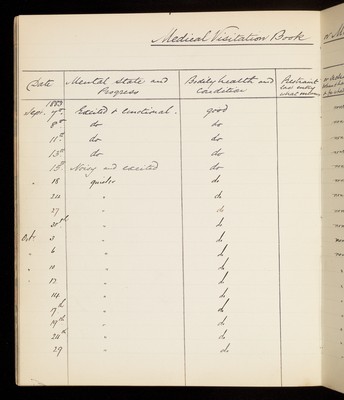 Medical Visitation Book
Date Mental State and Progress Bodily health and Condition Restraint
1883
Sept. 7th Excited & emotional. good
8th do do
11th do do
13th do do
15th Noisy and excited do
" 18 quieter do
24 " do
27 " do
30th " do
Oct 3 " do
" 6 " do
" 10 " do
" 13 " do
14 " do
17th " do
19th " do
24th " do
29 " do